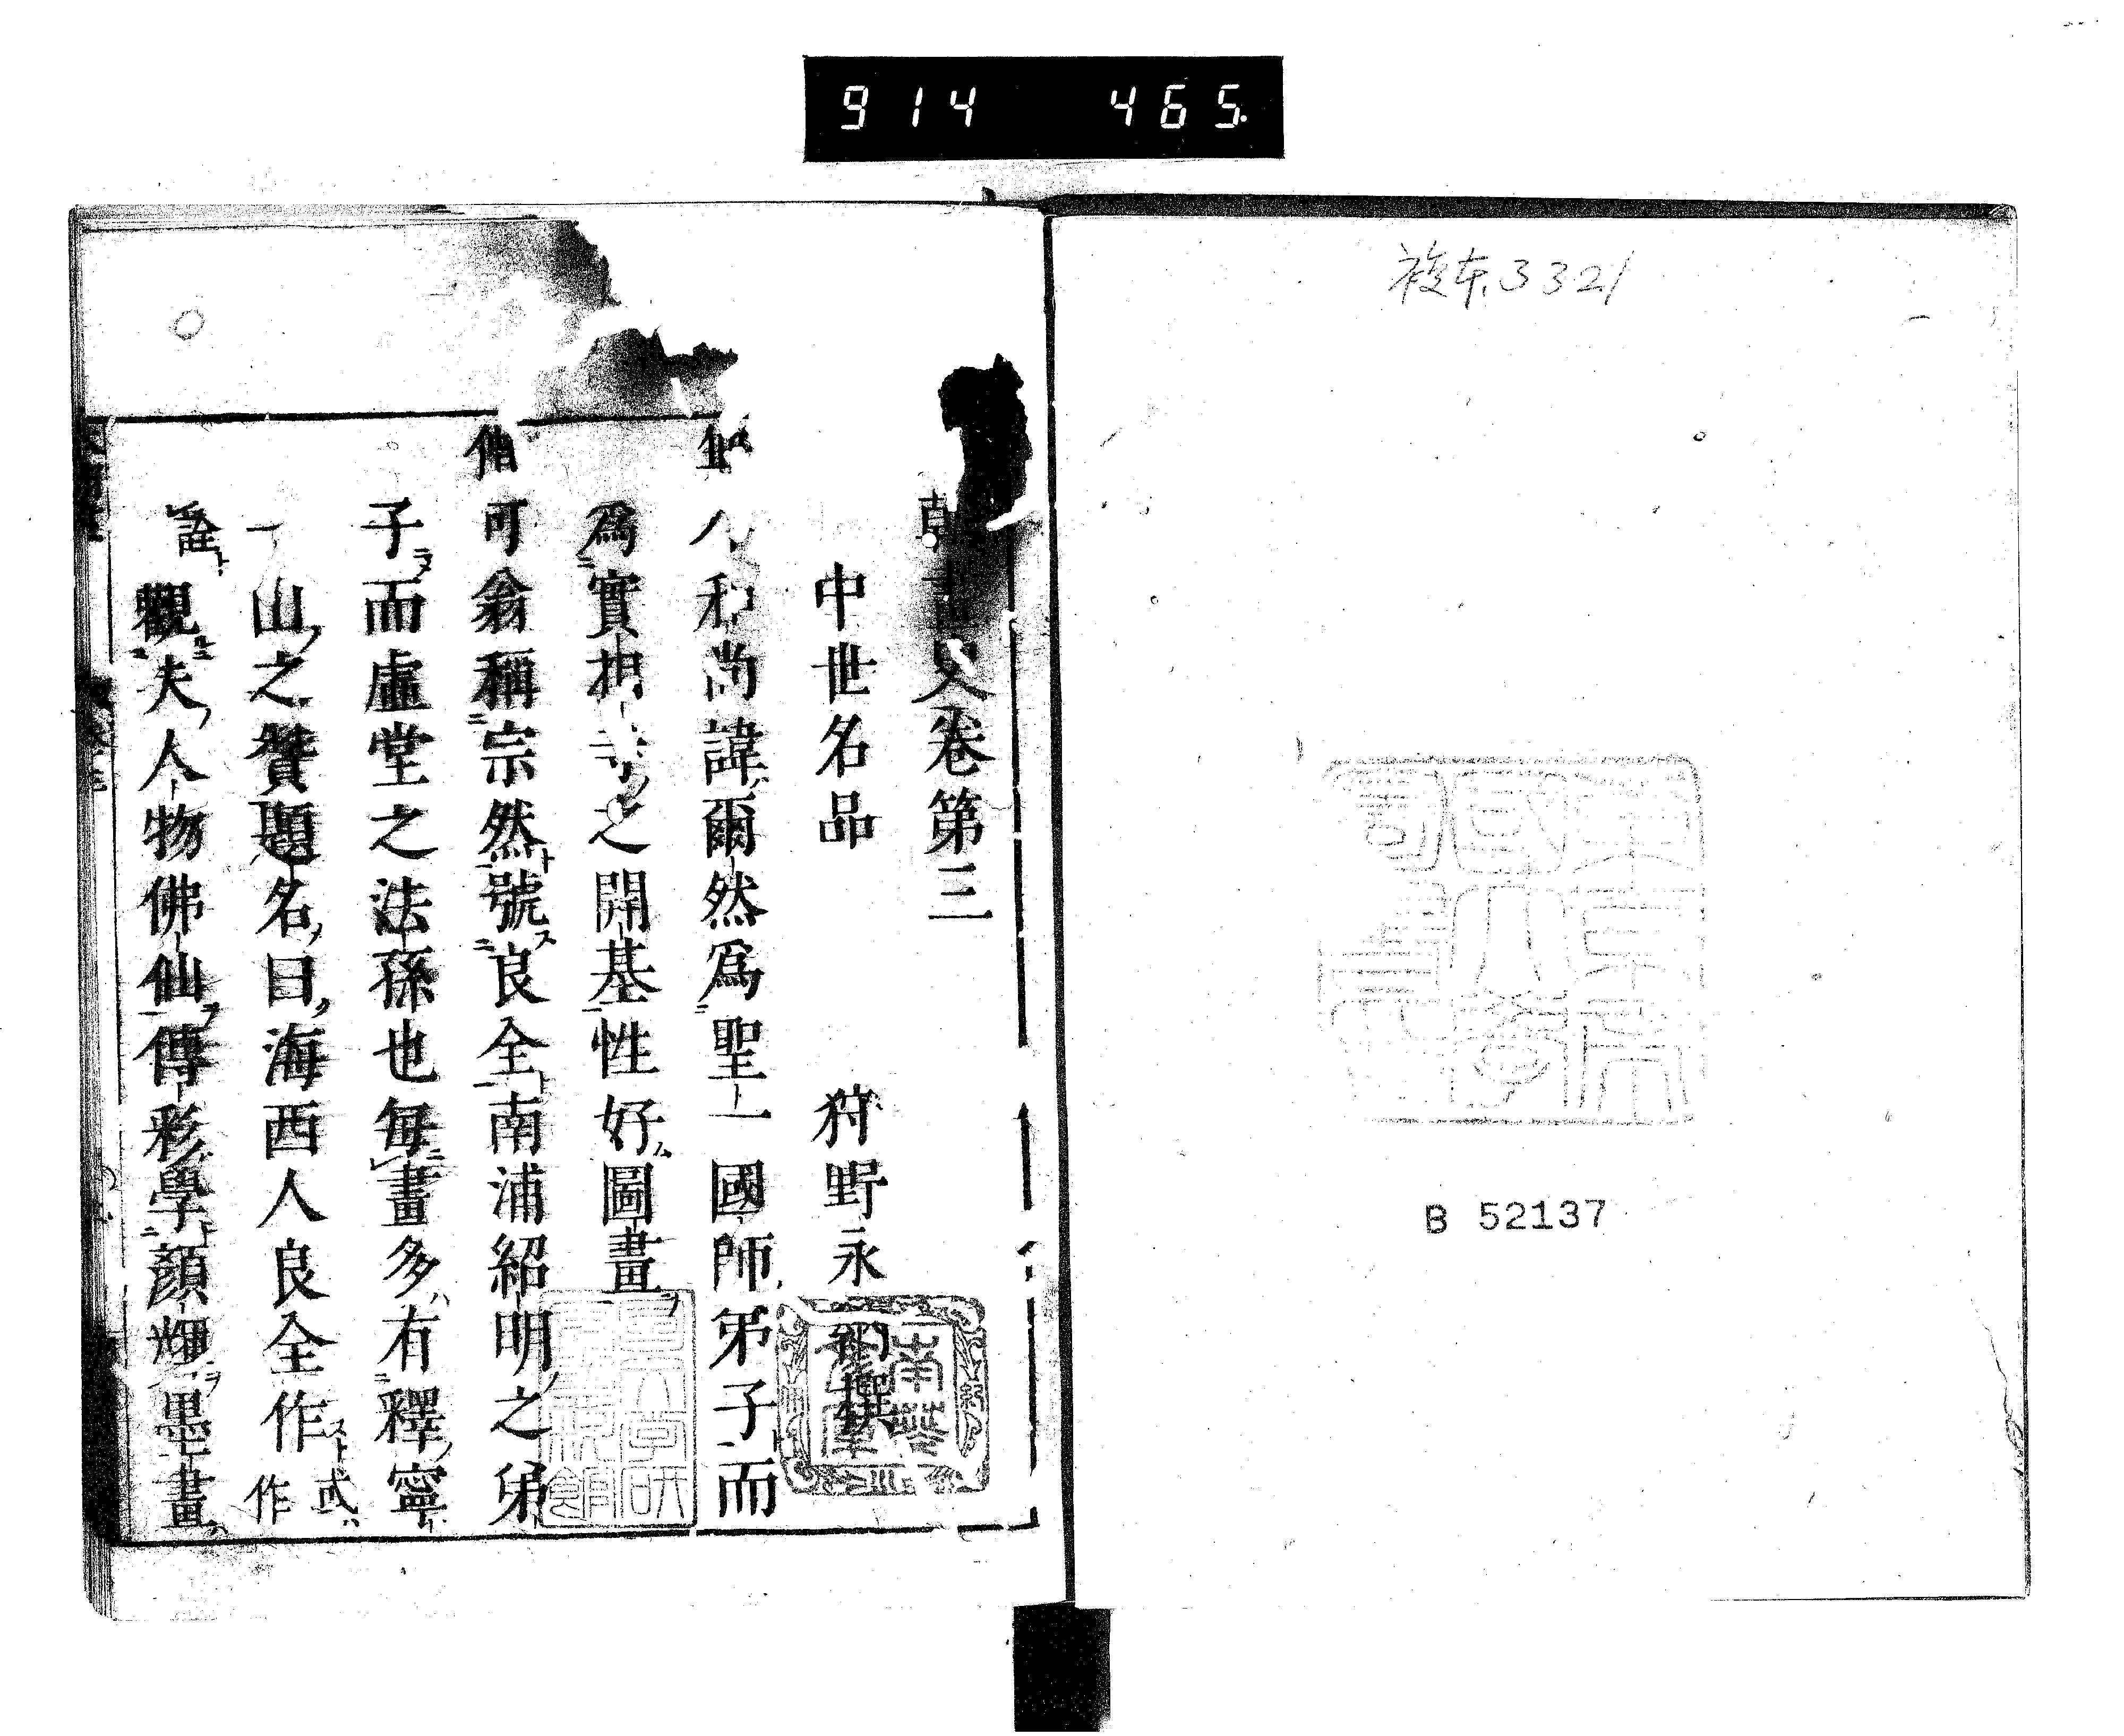 914 465.
複本 3321
B 52137
畫史卷第三
中世名品 狩野永納撰
和尚諱爾然爲聖一國師弟子而
爲實相寺之開基性好圖畫
可翁稱宗然號良全南浦紹明之弟
子而虛堂之法孫也每畫多有釋寧
一山之贊題名曰海西人良全作或作
詮觀夫人物佛仙傳彩學顔輝墨畫